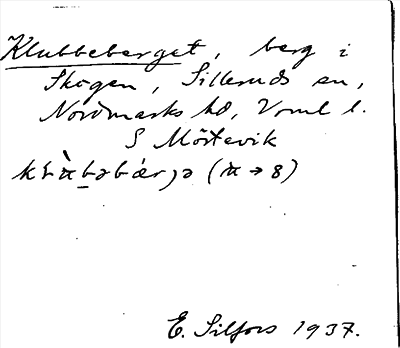 Klubbeberget, berg i
Skogen, Silleruds sn,
Nordmarks hd, Vrml l.
S Mörtevik
(→ 8)
E. Silfors 1937.